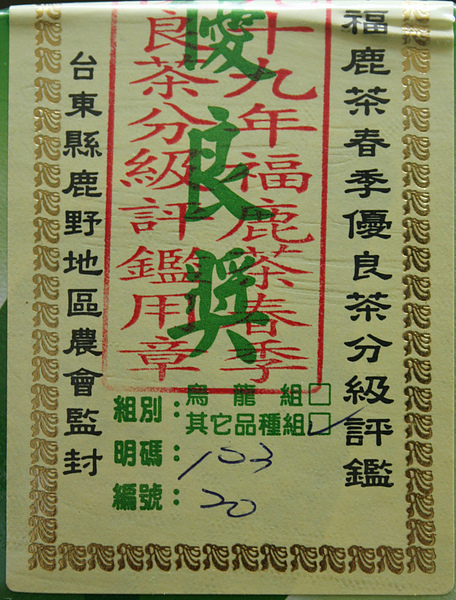 福鹿茶春季優良茶分級評鑑
十九年福鹿茶春季
良茶分級評鑑用章
優良獎
台東縣鹿野地區農會監封
組別：烏龍組□
其它品種組□✓
明碼：103
編號：20